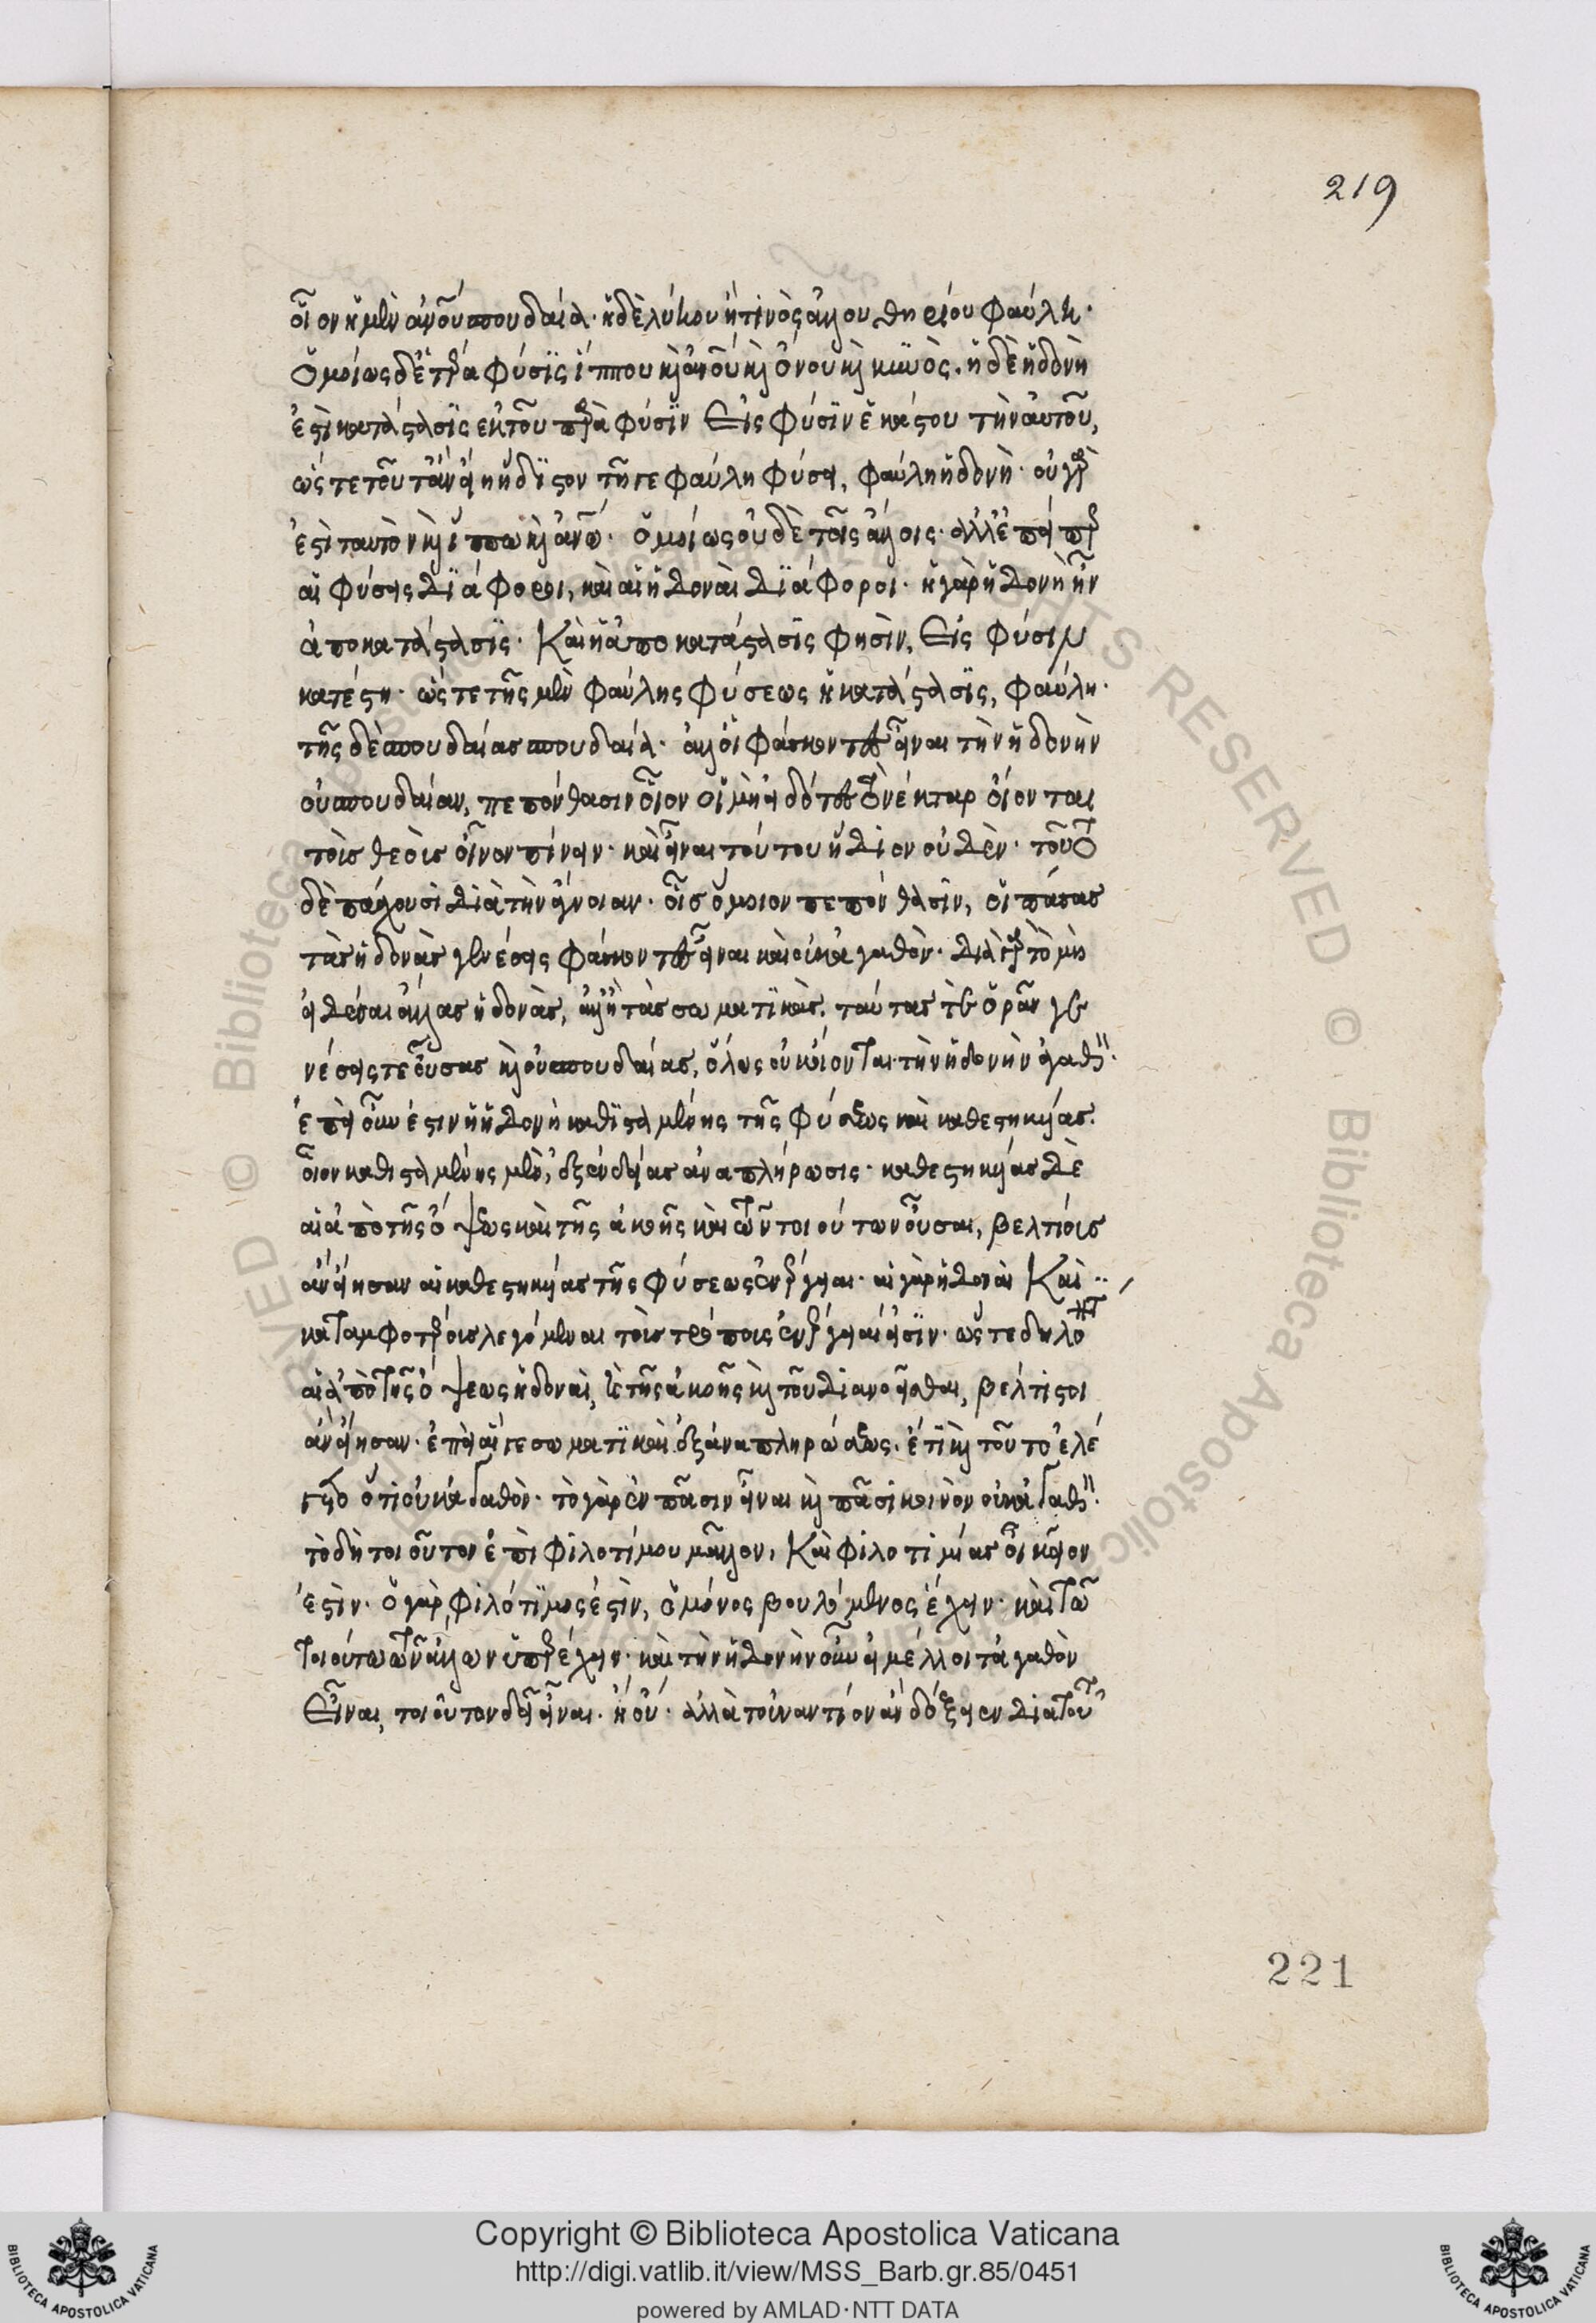 219
οἷον ἡ μὲν ἀνοῦ σπουδαία· ἡ δὲ λύκου ἤ τινὸς ἄλλου θηρίου φαύλη·
ὁμοίως δὲ ἑτέρα φύσϊς ἵππου καὶ ἀνοῦ καὶ ὄνου καὶ κϋνὸς. ἡ δὲ ἡδονὴ
ἐστὶ κατάστασϊς ἐκ τοῦ παρὰ φύσϊν εἰς φύσϊν ἑκάστου τὴν αὐτοῦ,
ὥστε τοῦτ' ἂν εἴη ἥδϊστον τῆ γε φαύλη φύσει, φαύλη ἡδονὴ· οὐ γὰρ
ἐστὶ ταυτὸν καὶ ἵππω καὶ ἀνω· ὁμοίως οὐδὲ τοῖς ἄλλοις· ἀλλ' ἐπεί περ
αἱ φύσεις δϊάφοροι, καὶ αἱ ἡδοναὶ δϊάφοροι· ἡ γὰρ ἡδονὴ ἦν
ἀποκατάστασϊς· Καὶ ἡ ἀποκατάστασϊς φησὶν, εἰς φύσιν
κατέστη· ὥστε τῆς μὲν φαύλης φύσεως ἡ κατάστασϊς, φαύλη·
τῆς δὲ σπουδαίας σπουδαία· ἀλλ' οἱ φάσκοντες εἶναι τὴν ἡδονὴν
οὐ σπουδαίαν, πεπόνθασιν οἷον οἱ μὴ εἰδότες τὸ νέκταρ οἴονται
τοὶς θεοὶς οἶνον πίνειν· καὶ εἶναι τούτου ἥδιον οὐδὲν· τοῦτο
δὲ πάσχουσι διὰ τὴν ἄγνοιαν· οἷς ὅμοιον πεπόνθασϊν, οἱ πάσας
τὰς ἡδονὰς γενέσεις φάσκοντες εἶναι καὶ οὐκ ἀγαθὸν· διὰ γὰρ τὸ μὴ
εἰδέναι ἄλλας ἡδονὰς, ἀλλ' ἢ τὰς σωματϊκὰς, ταύτας τε ὁρᾶν γε
νέσεις τε οὔσας καὶ οὐ σπουδαίας, ὅλως οὐκ οἴονται τὴν ἡδονὴν ἀγαθὸν.
ἐπεὶ οὖν ἐστιν ἡ ἡδονὴ καθϊσταμένης τῆς φύσεως καὶ καθεστηκυίας.
οἷον καθισταμένης μὲν, ἐξ ἐνδείας ἀναπλήρωσις· καθεστηκυίας δὲ
αἱ ἀπὸ τῆς ὄψεως καὶ τῆς ἀκοῆς καὶ τῶν τοιούτων οὖσαι, βελτίοις
ἂν εἴησαν αἱ καθεστηκυίας τῆς φύσεως ἐνέργειαι· αἱ γὰρ ἡδοναὶ Καὶ
κατ' ἀμφοτέροις λεγόμεναι τοὶς τρόποις ἐνέργειαί εἰσϊν· ὥστε δηλο
αἱ ἀπὸ τῆς ὄψεως ἡδοναὶ, καὶ τῆς ἀκοῆς καὶ τοῦ διανοεῖσθαι, βελτίστοι
ἂν εἴησαν· ἐπεὶ αἵ γε σωματϊκαὶ ἐξ ἀναπληρώσεως. ἔτϊ καὶ τοῦτο ἐλέ
γετο ὅτι οὐκ ἀγαθὸν· τὸ γὰρ ἐν πᾶσιν εἶναι καὶ πᾶσι κοινὸν οὐκ ἀγαθὸν.
τὸ δὴ τοιοῦτον ἐπὶ φιλοτίμου μᾶλλον, Καὶ φιλοτιμίας οἰκεῖον
ἐστὶν. ὁ γὰρ φιλότϊμος ἐστὶν, ὁ μόνος βουλόμενος ἔχειν· καὶ τῶ
τοιούτω τῶν ἄλλων ὑπερέχειν· καὶ τὴν ἡδονὴν οὖν εἰ μέλλοι τἀγαθὸν
εἶναι, τοιοῦτον δεῖ εἶναι. ἢ οὔ· ἀλλὰ τοὐναντίον ἂν δόξειεν διὰ τοῦτ
221
Copyright © Biblioteca Apostolica Vaticana
http://digi.vatlib.it/view/MSS_Barb.gr.85/0451
powered by AMLAD·NTT DATA